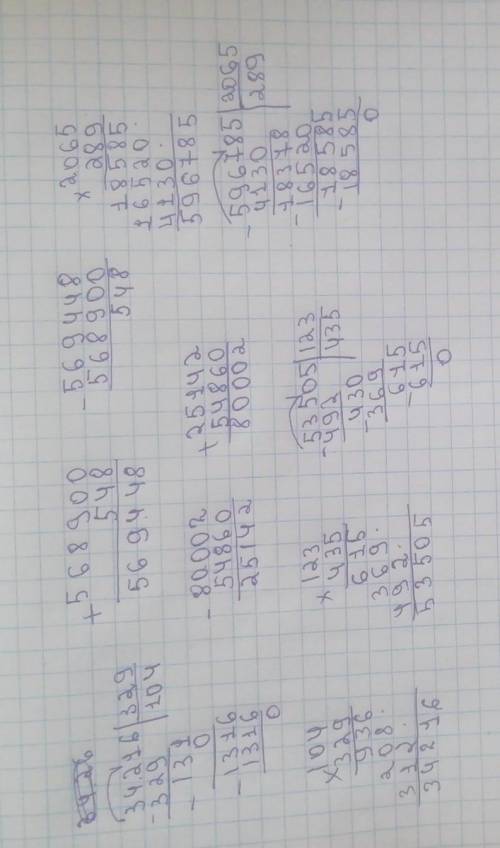 34216 | 329
- 329 | 104
131
- 0
1316
- 1316
0
+ 568900
548
569448
- 569448
568900
548
× 2065
289
18585
16520.
4130.
596785
- 80002
54860
25142
+ 25142
54860
80002
104
× 329
936
208.
312.
34216
123
× 435
615
369.
492.
53505
53505 | 123
- 492 | 435
430
- 369
615
- 615
0
596785 | 2065
- 4130 | 289
18378
- 16520
18585
- 18585
0